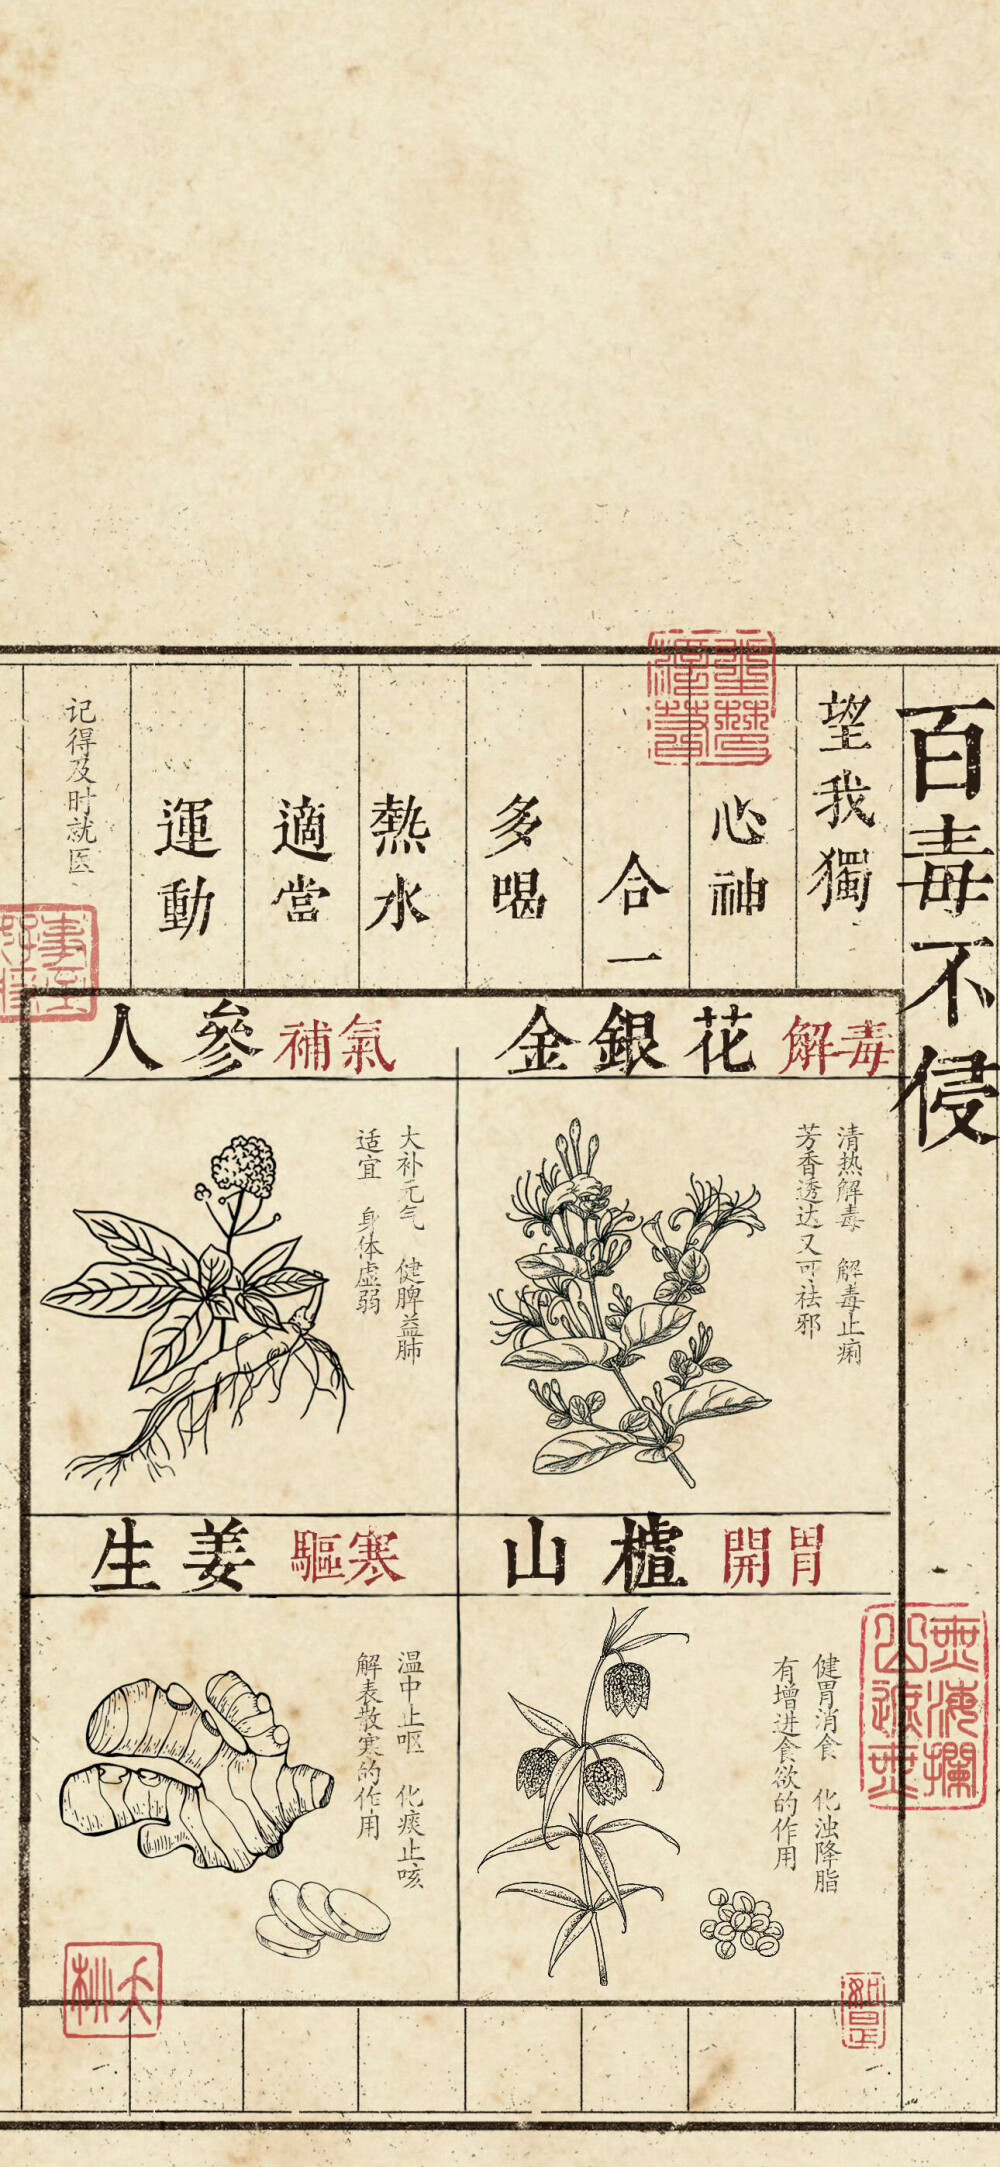 百毒不侵
望我獨
心神
合一
多喝
熱水
適當
運動
记得及时就医
金銀花 解毒
清热解毒 解毒止痢
芳香透达又可祛邪
人參 補氣
大补元气 健脾益肺
适宜 身体虚弱
山樝 開胃
健胃消食 化浊降脂
有增进食欲的作用
生姜 驅寒
温中止呕 化痰止咳
解表散寒的作用
無海攔
山遮無
如是